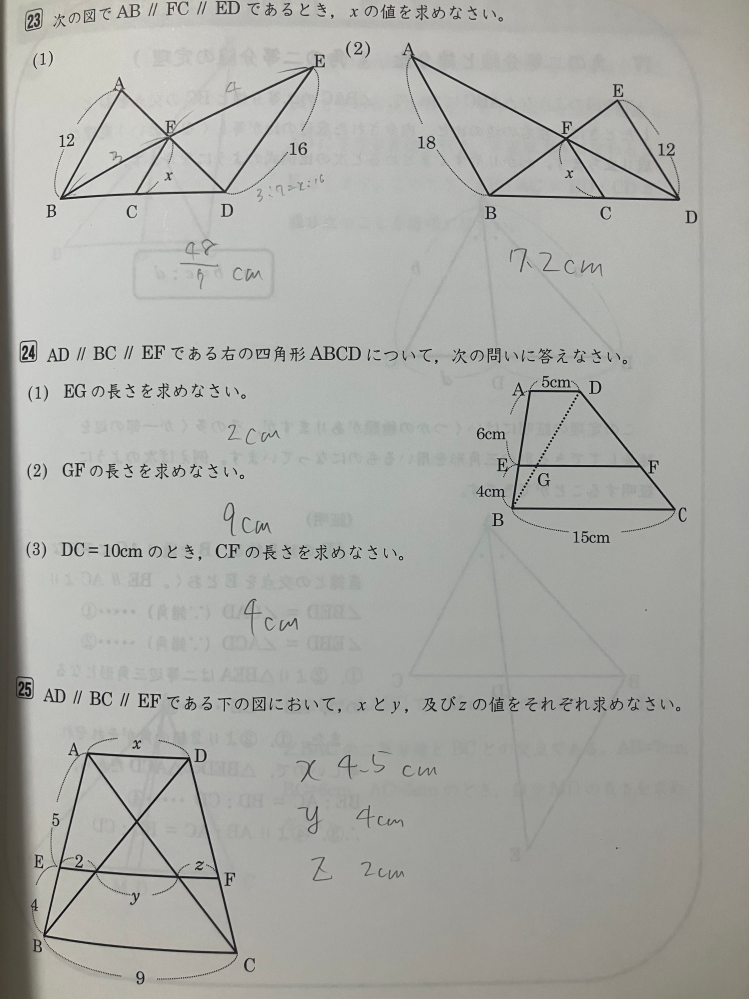 23 次の図で AB // FC // ED であるとき，xの値を求めなさい。
(1)
A
E
F
12
4
3
16
x
B
C
D
3:7=x:16
48/7 cm
(2)
A
E
F
18
12
x
B
C
D
7.2cm
24 AD // BC // EF である右の四角形 ABCD について，次の問いに答えなさい。
(1) EG の長さを求めなさい。
2cm
(2) GF の長さを求めなさい。
9cm
(3) DC＝10cm のとき，CF の長さを求めなさい。
4cm
A
5cm
D
6cm
E
F
G
4cm
B
C
15cm
25 AD // BC // EF である下の図において，xとy，及びzの値をそれぞれ求めなさい。
A
x
D
5
E
2
z
F
y
4
B
C
9
x 4.5 cm
y 4cm
z 2cm